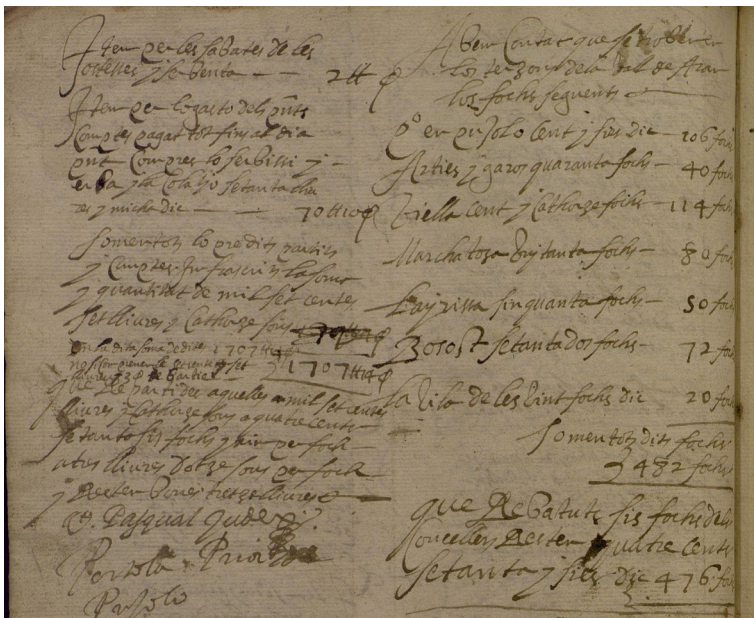 Item per les sabates de les
Jostesses y se benta — — 2 ℔
Item per lo gasto dels pnts
Comptes pagat tot fins al dia
pnt Compres lo serbissi y
erba y la Colatio setanta lliu
res y micha dic — 70 ℔ 10 ß
Somen tots lo predits partits
y Comptes Infrascrits la soma
y quantitat de mil set centes
set lliures y Cathorze sous
1707 ℔ 14 ß
1707 ℔ 14 ß
que Repartides aquelles mil set centes
lliures y Cathorze sous a quatre cents
setanta sis fochs y bin per foch
a tres lliures dotze sous per foch
y Resten bones tretze lliures
Pasqual Jude
Portola Prior
Pujolo
Abem Contat que se troben en
los tersons de la Val de Aran
los fochs seguents
Po en pujolo Cent y sies dic — 106 fochs
Arties y garos quaranta fochs — 40 fochs
Viella Cent y Cathorze fochs — 114 foch
Marchatosa Vuytanta fochs — 80 foch
Layrissa sinquanta fochs — 50 fochs
Bosost setanta dos fochs — 72 foch
la Vila de les Vint fochs dic 20 foch
Somen tots dits fochs
482 fochs
que Rebatuts sis fochs dels
Concellers Resten quatre cents
setanta y sies dic 476 foch